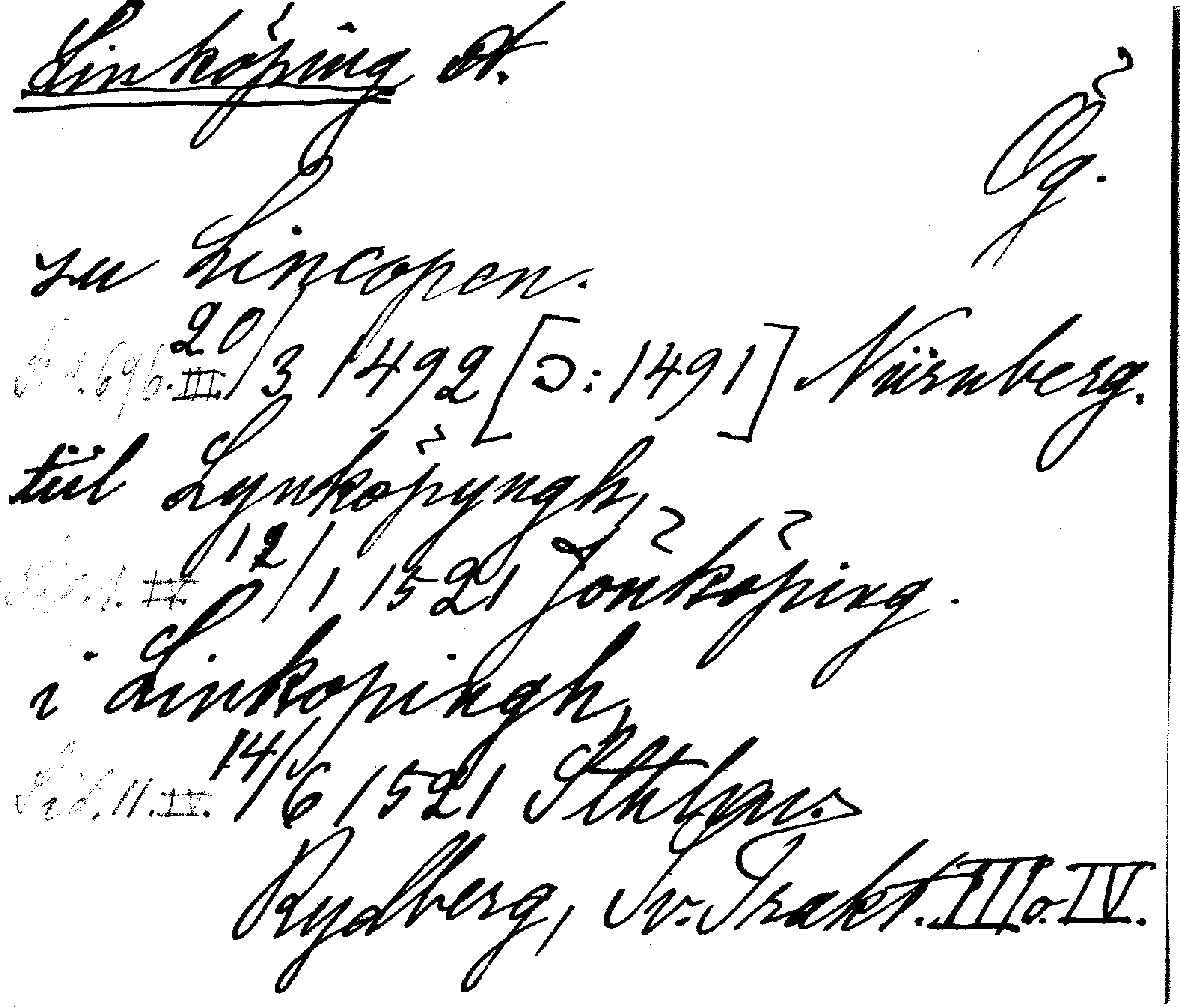 Linköping st.
Ög.
zu Lincopen.
Sid. 696. III. 20/3 1492 [ɔ: 1491] Nürnberg.
tiil Lynköpyngh,
Sid. 1. IV. 12/1 1521 Jönköping.
i Linkopingh,
Sid. 11. IV. 14/6 1521 Sthlm.
Rydberg, Sv. Trakt. III o. IV.